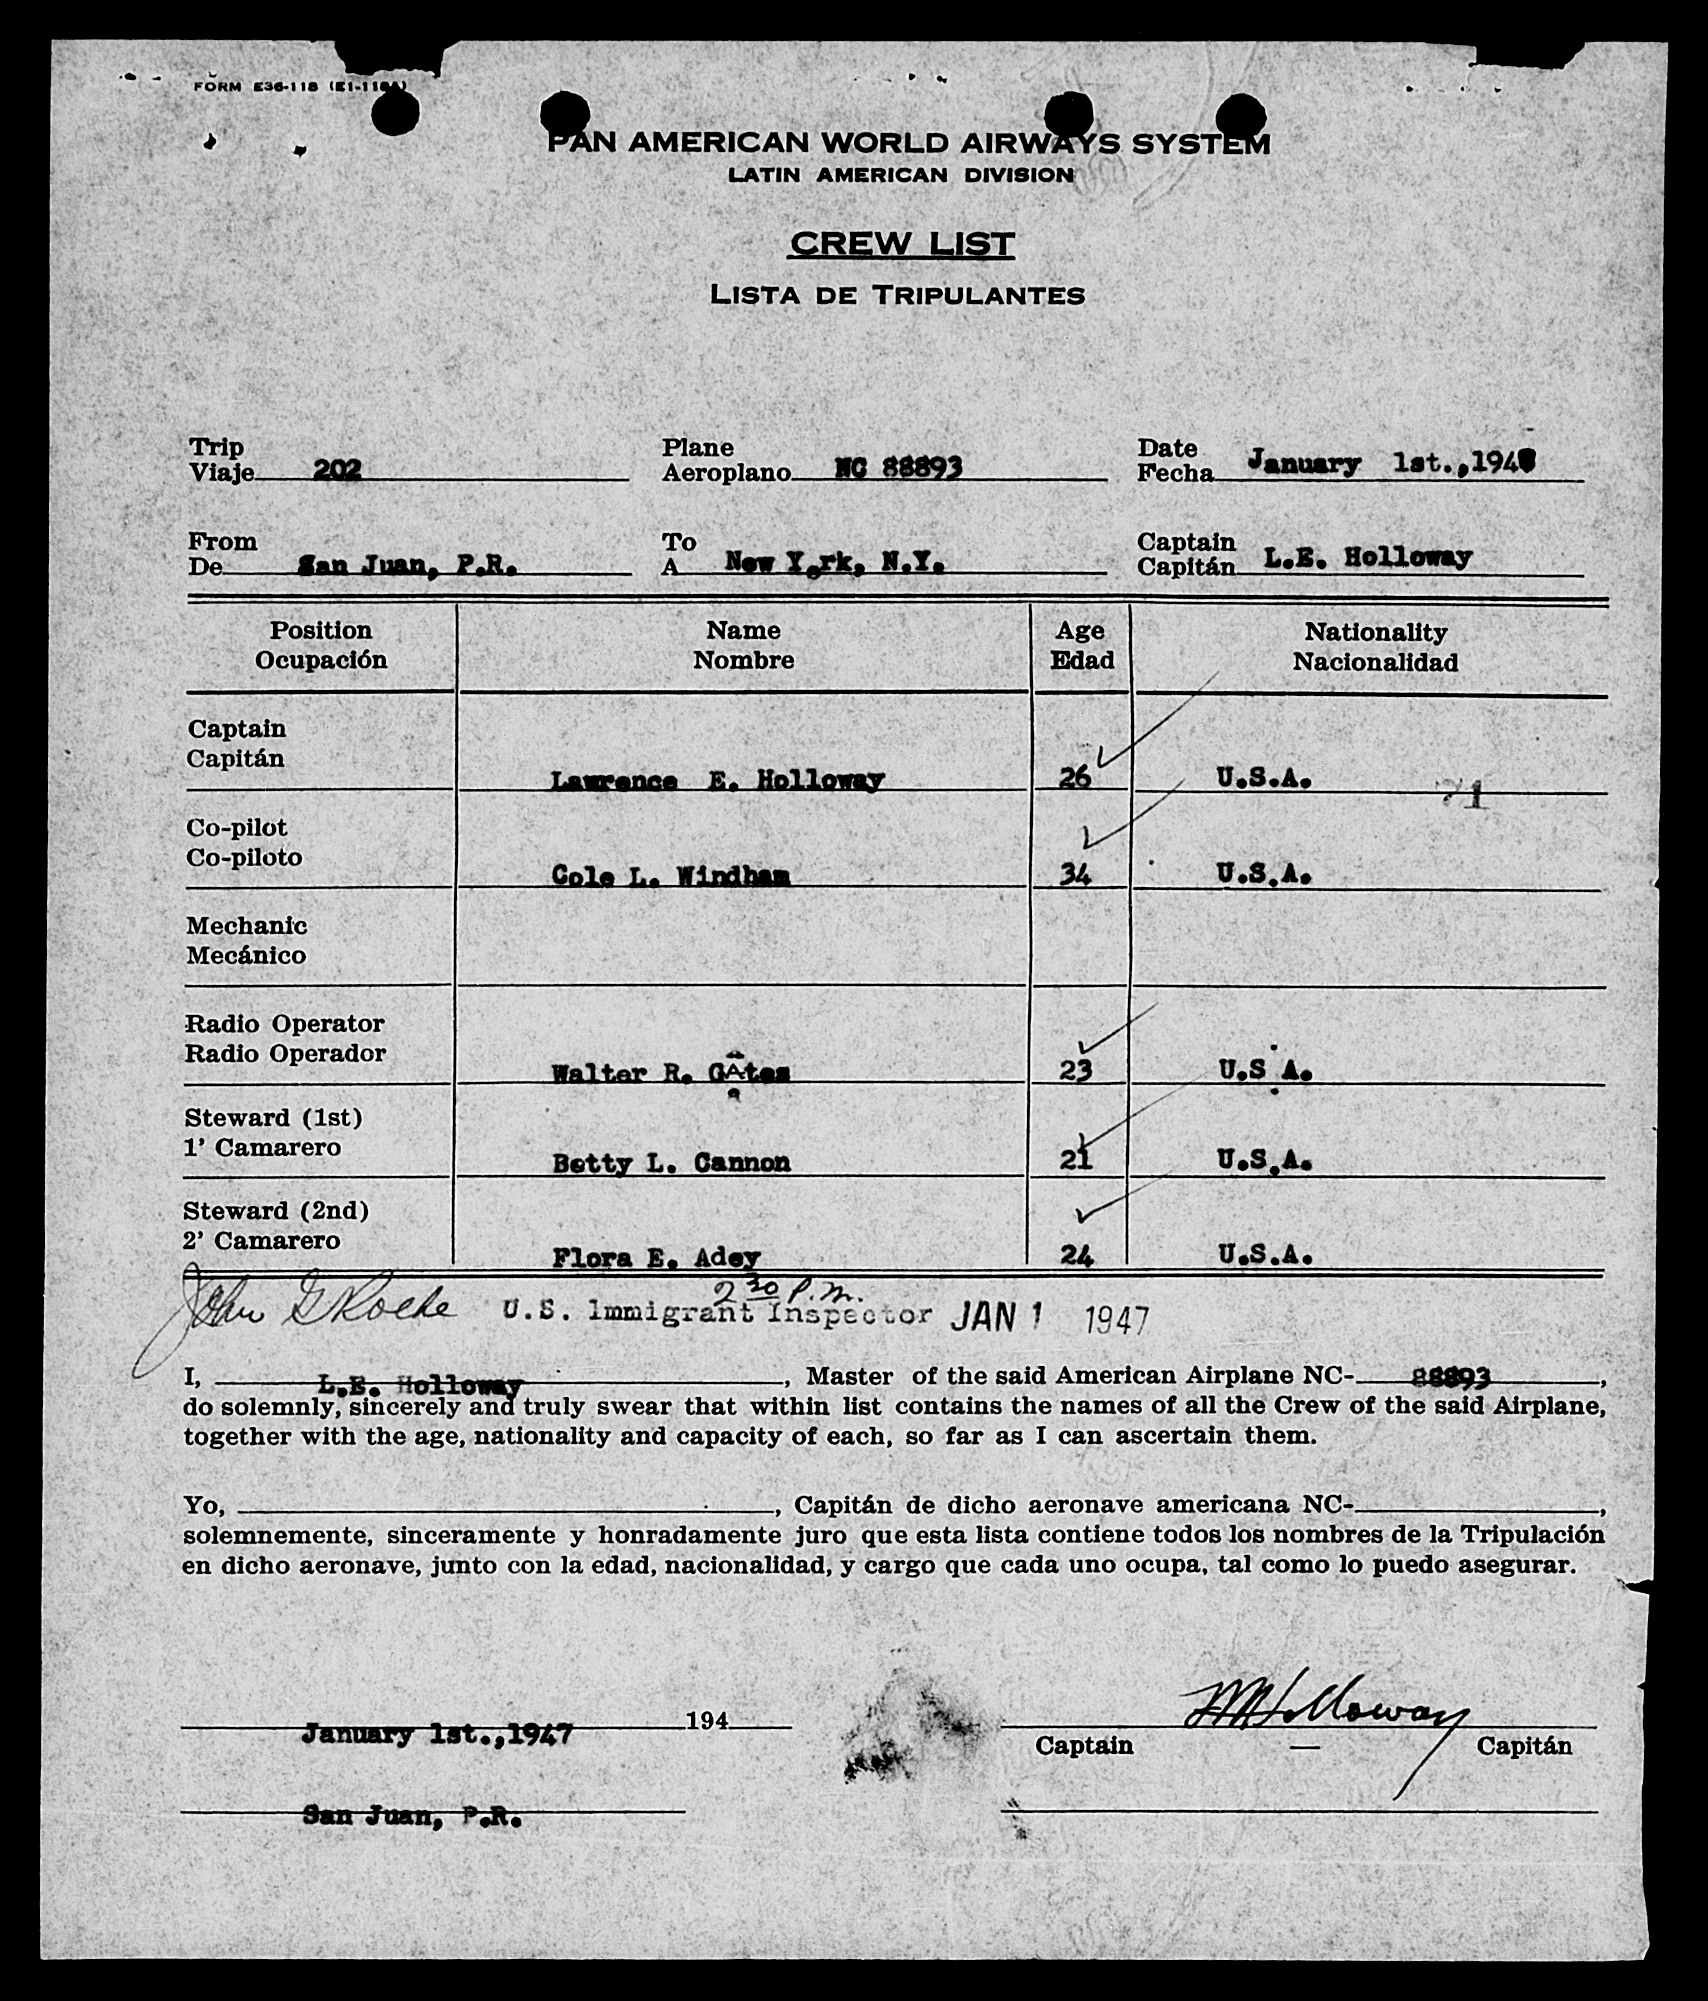 FORM E36-118 (E1-118A)
PAN AMERICAN WORLD AIRWAYS SYSTEM
LATIN AMERICAN DIVISION
CREW LIST
LISTA DE TRIPULANTES
Trip Plane Date
Viaje 202 Aeroplano NC 88893 Fecha January 1st.,194
From To Captain
De San Juan, P.R. A New York, N.Y. Capitán L.E. Holloway
Position Name Age Nationality
Ocupación Nombre Edad Nacionalidad
Captain
Capitán Lawrence E. Holloway 26 U.S.A.
Co-pilot
Co-piloto Cole L. Windham 34 U.S.A.
Mechanic
Mecánico
Radio Operator
Radio Operador Walter R. GAtes 23 U.S.A.
Steward (1st)
1' Camarero Betty L. Cannon 21 U.S.A.
Steward (2nd)
2' Camarero Flora E. Adey 24 U.S.A.
2 30 P.m.
John G Roche U.S. Immigrant Inspector JAN 1 1947
I, L.E. Holloway, Master of the said American Airplane NC- 88893,
do solemnly, sincerely and truly swear that within list contains the names of all the Crew of the said Airplane,
together with the age, nationality and capacity of each, so far as I can ascertain them.
Yo, , Capitán de dicho aeronave americana NC- ,
solemnemente, sinceramente y honradamente juro que esta lista contiene todos los nombres de la Tripulación
en dicho aeronave, junto con la edad, nacionalidad, y cargo que cada uno ocupa, tal como lo puedo asegurar.
January 1st.,1947 194 Holloway
Captain — Capitán
San Juan, P.R.